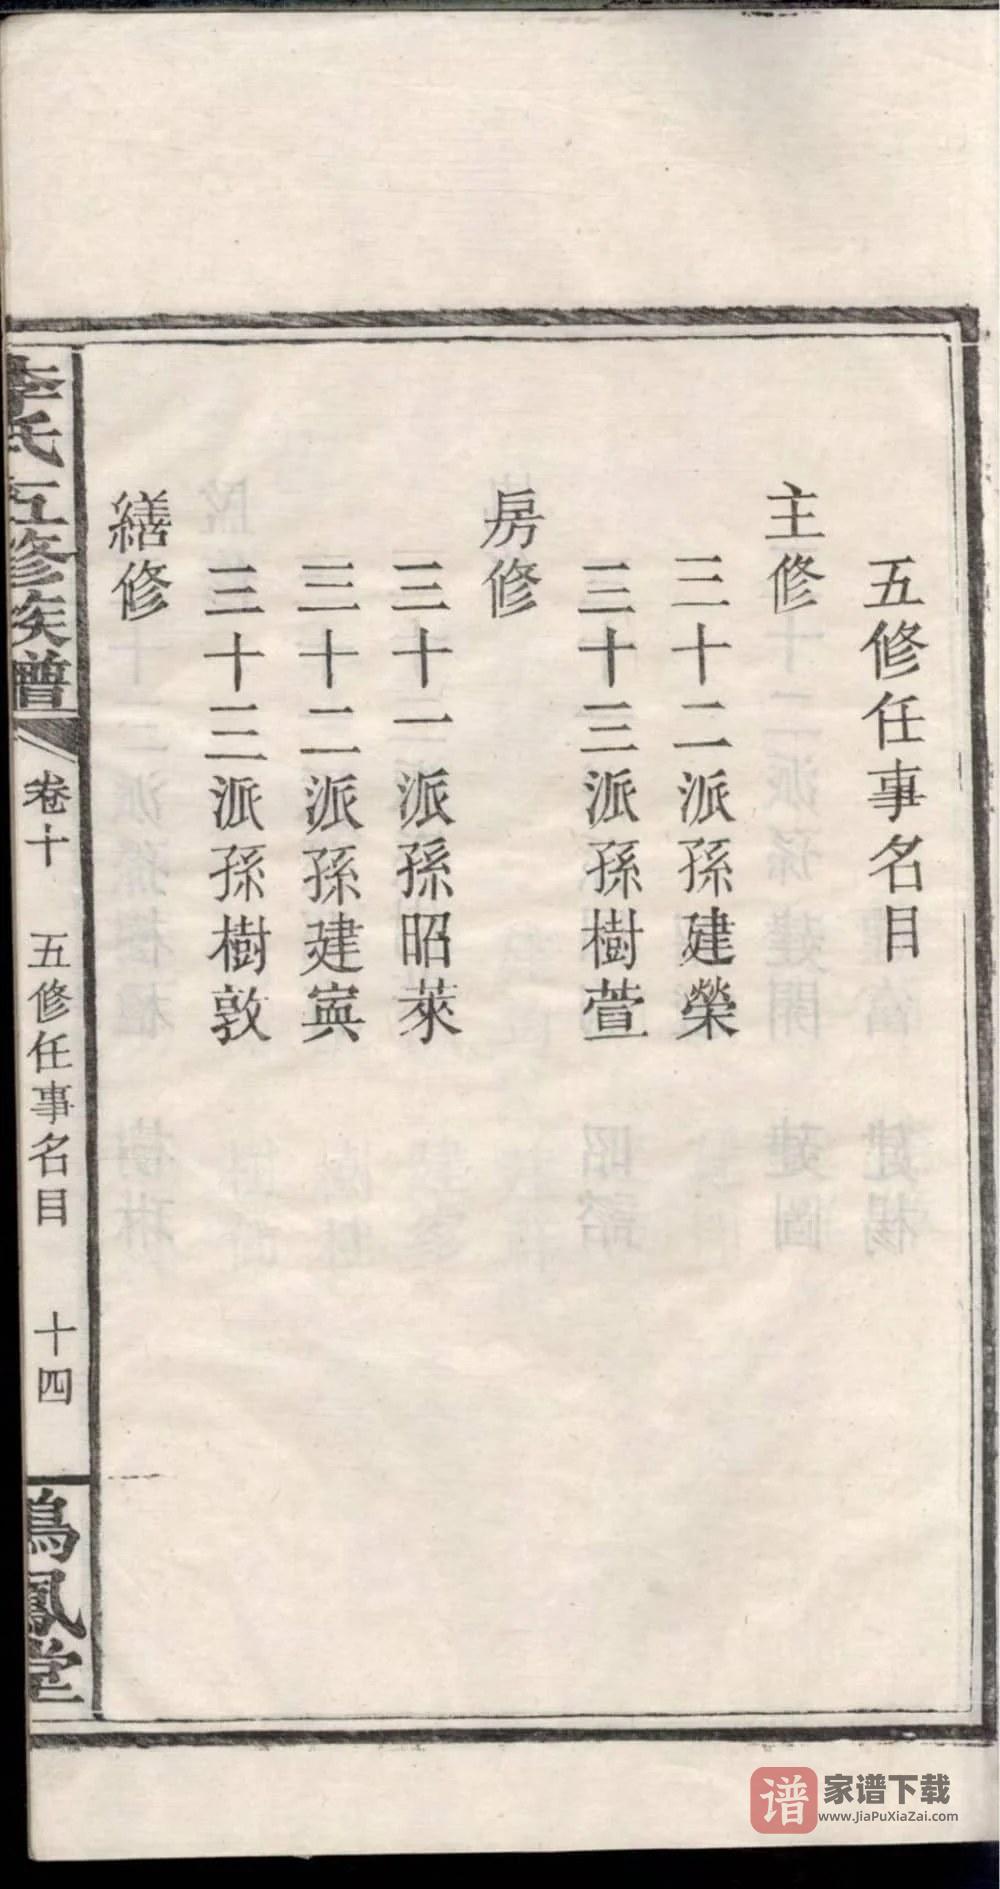 五修任事名目
主修
三十二派孫建榮
三十三派孫樹萱
房修
三十一派孫昭萊
三十二派孫建寅
三十三派孫樹敦
繕修
李氏五修族譜
卷十
五修任事名目
十四
鳴鳳堂
谱
家谱下载
www.JiaPuXiaZai.com